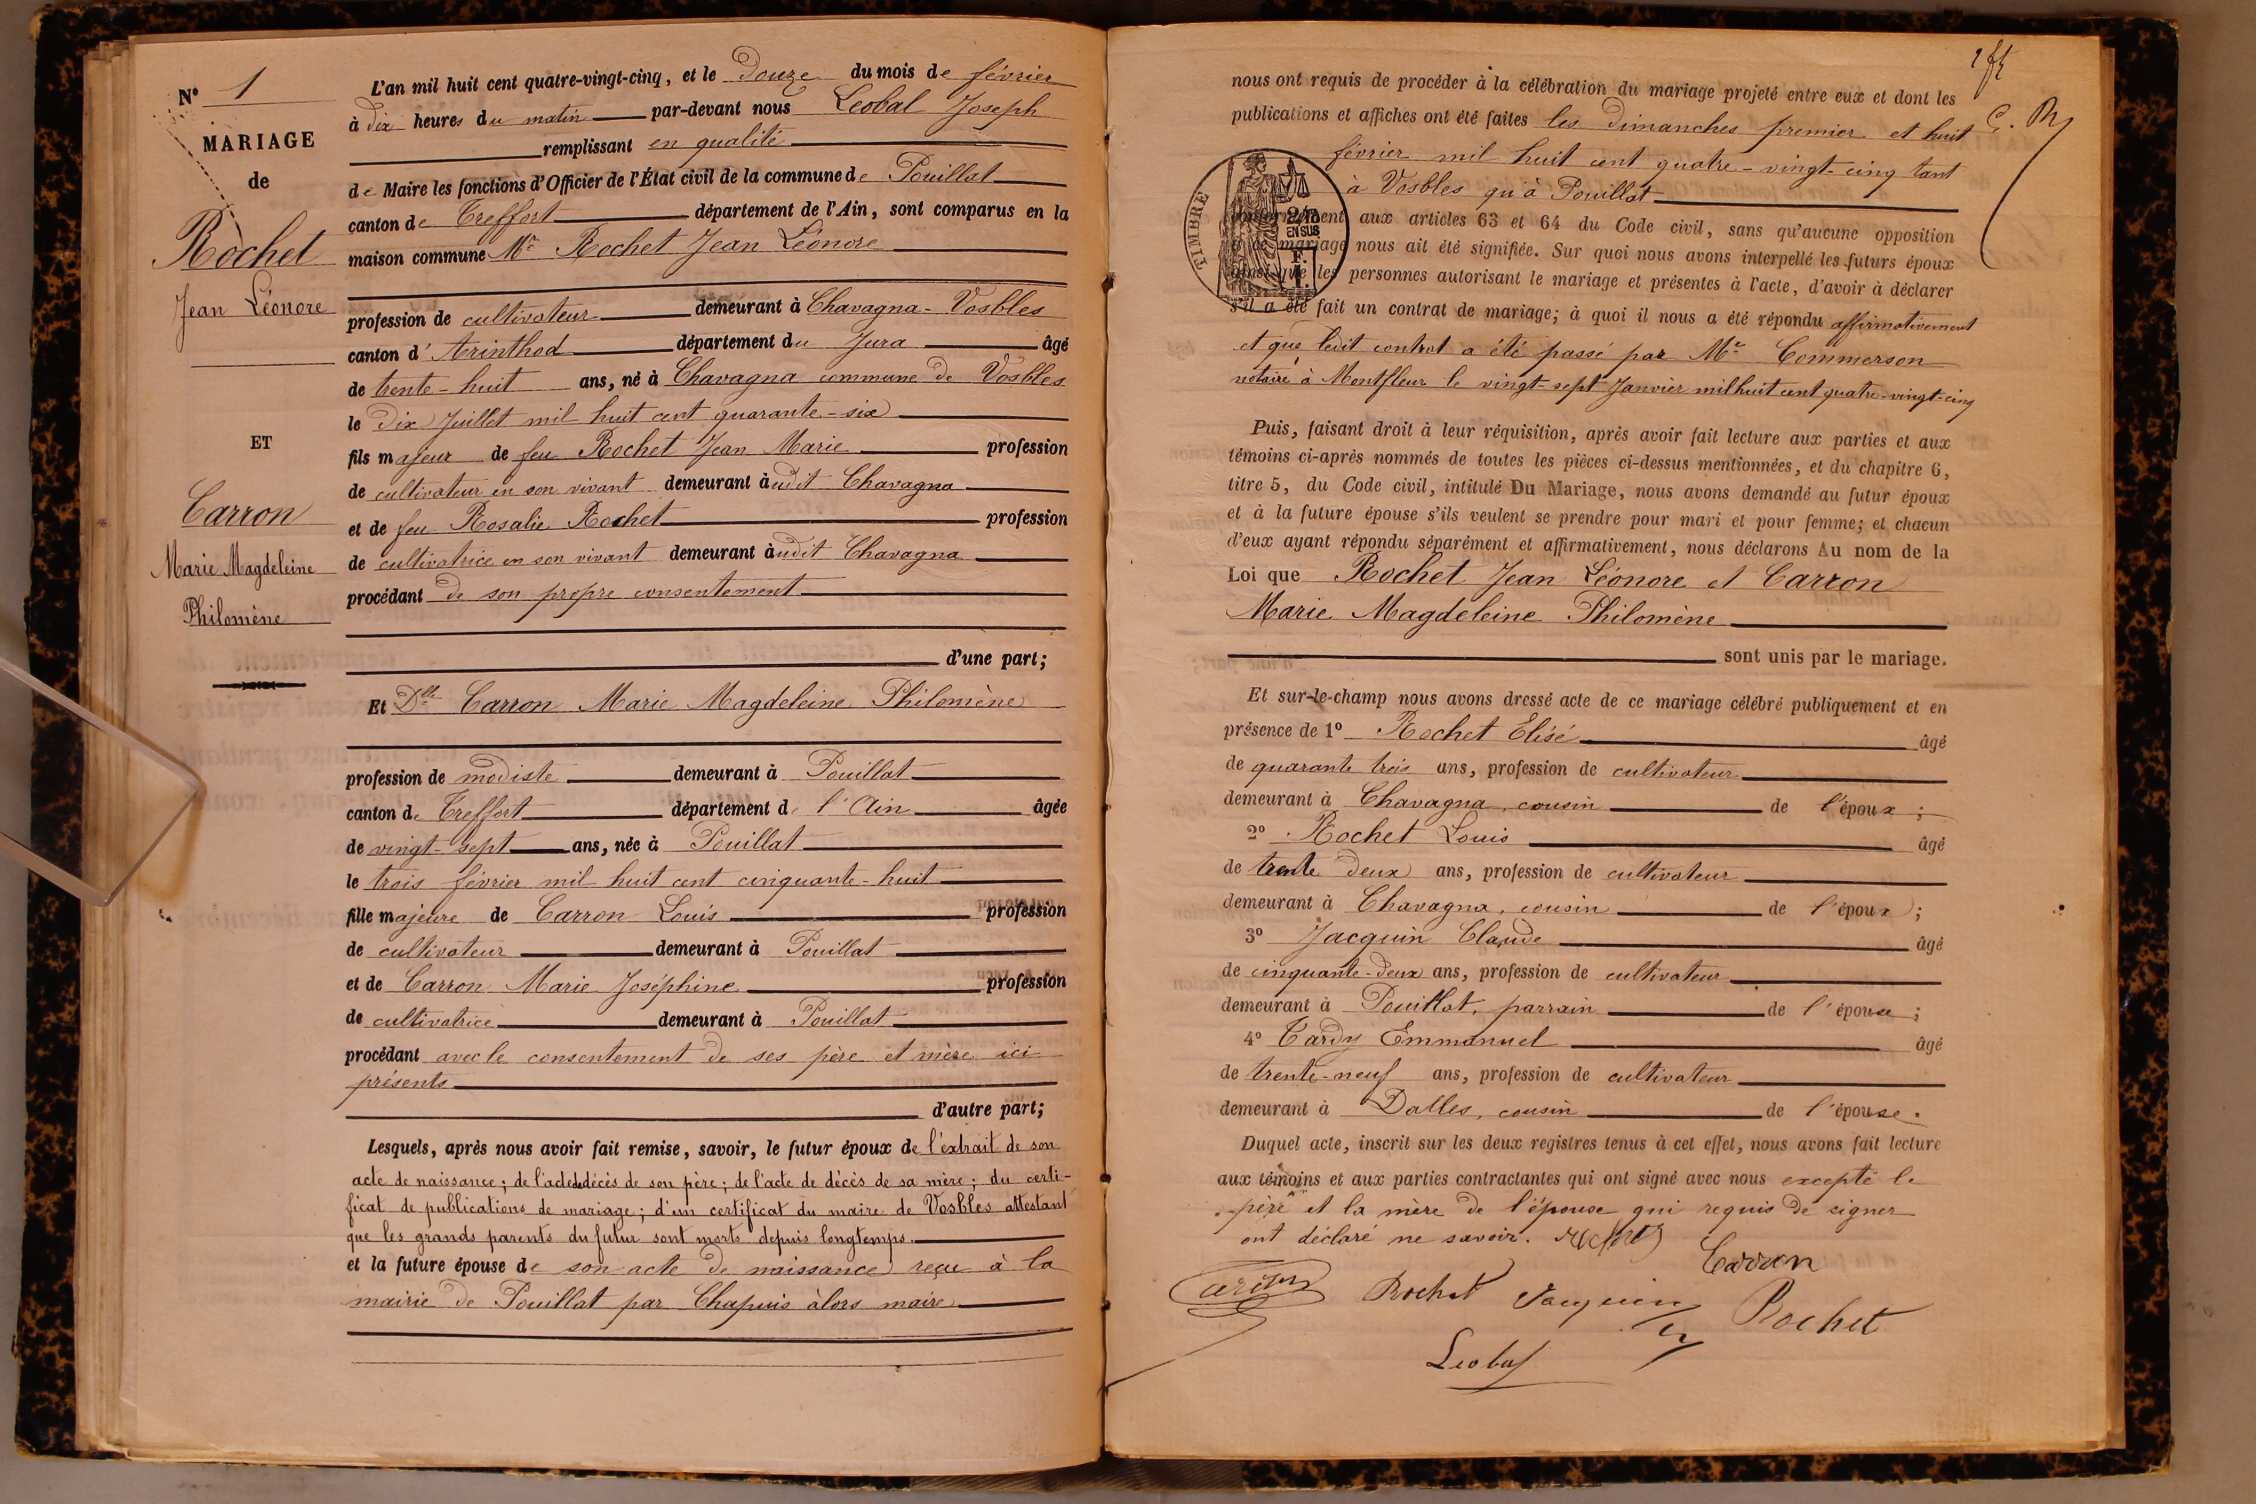 N° 1
MARIAGE
de
Rochet
Jean Léonore
ET
Carron
Marie Magdeleine
Philomène
L'an mil huit cent quatre-vingt-cinq, et le Douze du mois de février
à dix heures du matin par-devant nous Léobal Joseph
remplissant en qualité
de Maire les fonctions d'Officier de l'État civil de la commune de Pouillat
canton de Treffort département de l'Ain, sont comparus en la
maison commune Mr Rochet Jean Léonore
profession de cultivateur demeurant à Chavagna-Vosbles
canton d'Arinthod département du Jura âgé
de trente-huit ans, né à Chavagna commune de Vosbles
le dix Juillet mil huit cent quarante-six
fils majeur de feu Rochet Jean Marie profession
de cultivateur en son vivant demeurant audit Chavagna
et de feu Rosalie Rochet profession
de cultivatrice en son vivant demeurant audit Chavagna
procédant de son propre consentement
d'une part;
Et Dlle Carron Marie Magdeleine Philomène
profession de modiste demeurant à Pouillat
canton de Treffort département de l'Ain âgée
de vingt-sept ans, née à Pouillat
le trois février mil huit cent cinquante-huit
fille majeure de Carron Louis profession
de cultivateur demeurant à Pouillat
et de Carron Marie Joséphine profession
de cultivatrice demeurant à Pouillat
procédant avec le consentement de ses père et mère ici
présents
d'autre part;
Lesquels, après nous avoir fait remise, savoir, le futur époux de l'extrait de son
acte de naissance; de l'acte de décès de son père; de l'acte de décès de sa mère; du certi-
ficat de publications de mariage; d'un certificat du maire de Vosbles attestant
que les grands parents du futur sont morts depuis longtemps.
et la future épouse de son acte de naissance reçu à la
mairie de Pouillat par Chapuis alors maire
nous ont requis de procéder à la célébration du mariage projeté entre eux et dont les
publications et affiches ont été faites les Dimanches premier et huit
février mil huit cent quatre-vingt-cinq tant
à Vosbles qu'à Pouillat
TIMBRE
2/10
EN SUS
conformément aux articles 63 et 64 du Code civil, sans qu'aucune opposition
mariage nous ait été signifiée. Sur quoi nous avons interpellé les futurs époux
ainsi que les personnes autorisant le mariage et présentes à l'acte, d'avoir à déclarer
s'il a été fait un contrat de mariage; à quoi il nous a été répondu affirmativement
et que ledit contrat a été passé par Me Commerson
notaire à Montfleur le vingt-sept Janvier mil huit cent quatre-vingt-cinq
Puis, faisant droit à leur réquisition, après avoir fait lecture aux parties et aux
témoins ci-après nommés de toutes les pièces ci-dessus mentionnées, et du chapitre 6,
titre 5, du Code civil, intitulé Du Mariage, nous avons demandé au futur époux
et à la future épouse s'ils veulent se prendre pour mari et pour femme; et chacun
d'eux ayant répondu séparément et affirmativement, nous déclarons Au nom de la
Loi que Rochet Jean Léonore et Carron
Marie Magdeleine Philomène
sont unis par le mariage.
Et sur-le-champ nous avons dressé acte de ce mariage célébré publiquement et en
présence de 1° Rochet Elisé âgé
de quarante trois ans, profession de cultivateur
demeurant à Chavagna, cousin de l'époux;
2° Rochet Louis âgé
de trente deux ans, profession de cultivateur
demeurant à Chavagna, cousin de l'époux;
3° Jacquin Claude âgé
de cinquante-deux ans, profession de cultivateur
demeurant à Pouillat, parrain de l'épouse;
4° Tardy Emmanuel âgé
de trente-neuf ans, profession de cultivateur
demeurant à Dalles, cousin de l'épouse.
Duquel acte, inscrit sur les deux registres tenus à cet effet, nous avons fait lecture
aux témoins et aux parties contractantes qui ont signé avec nous excepté le
père et la mère de l'épouse qui requis de signer
ont déclaré ne savoir.
Carron
Rochet Jacquin
Rochet
Léobal